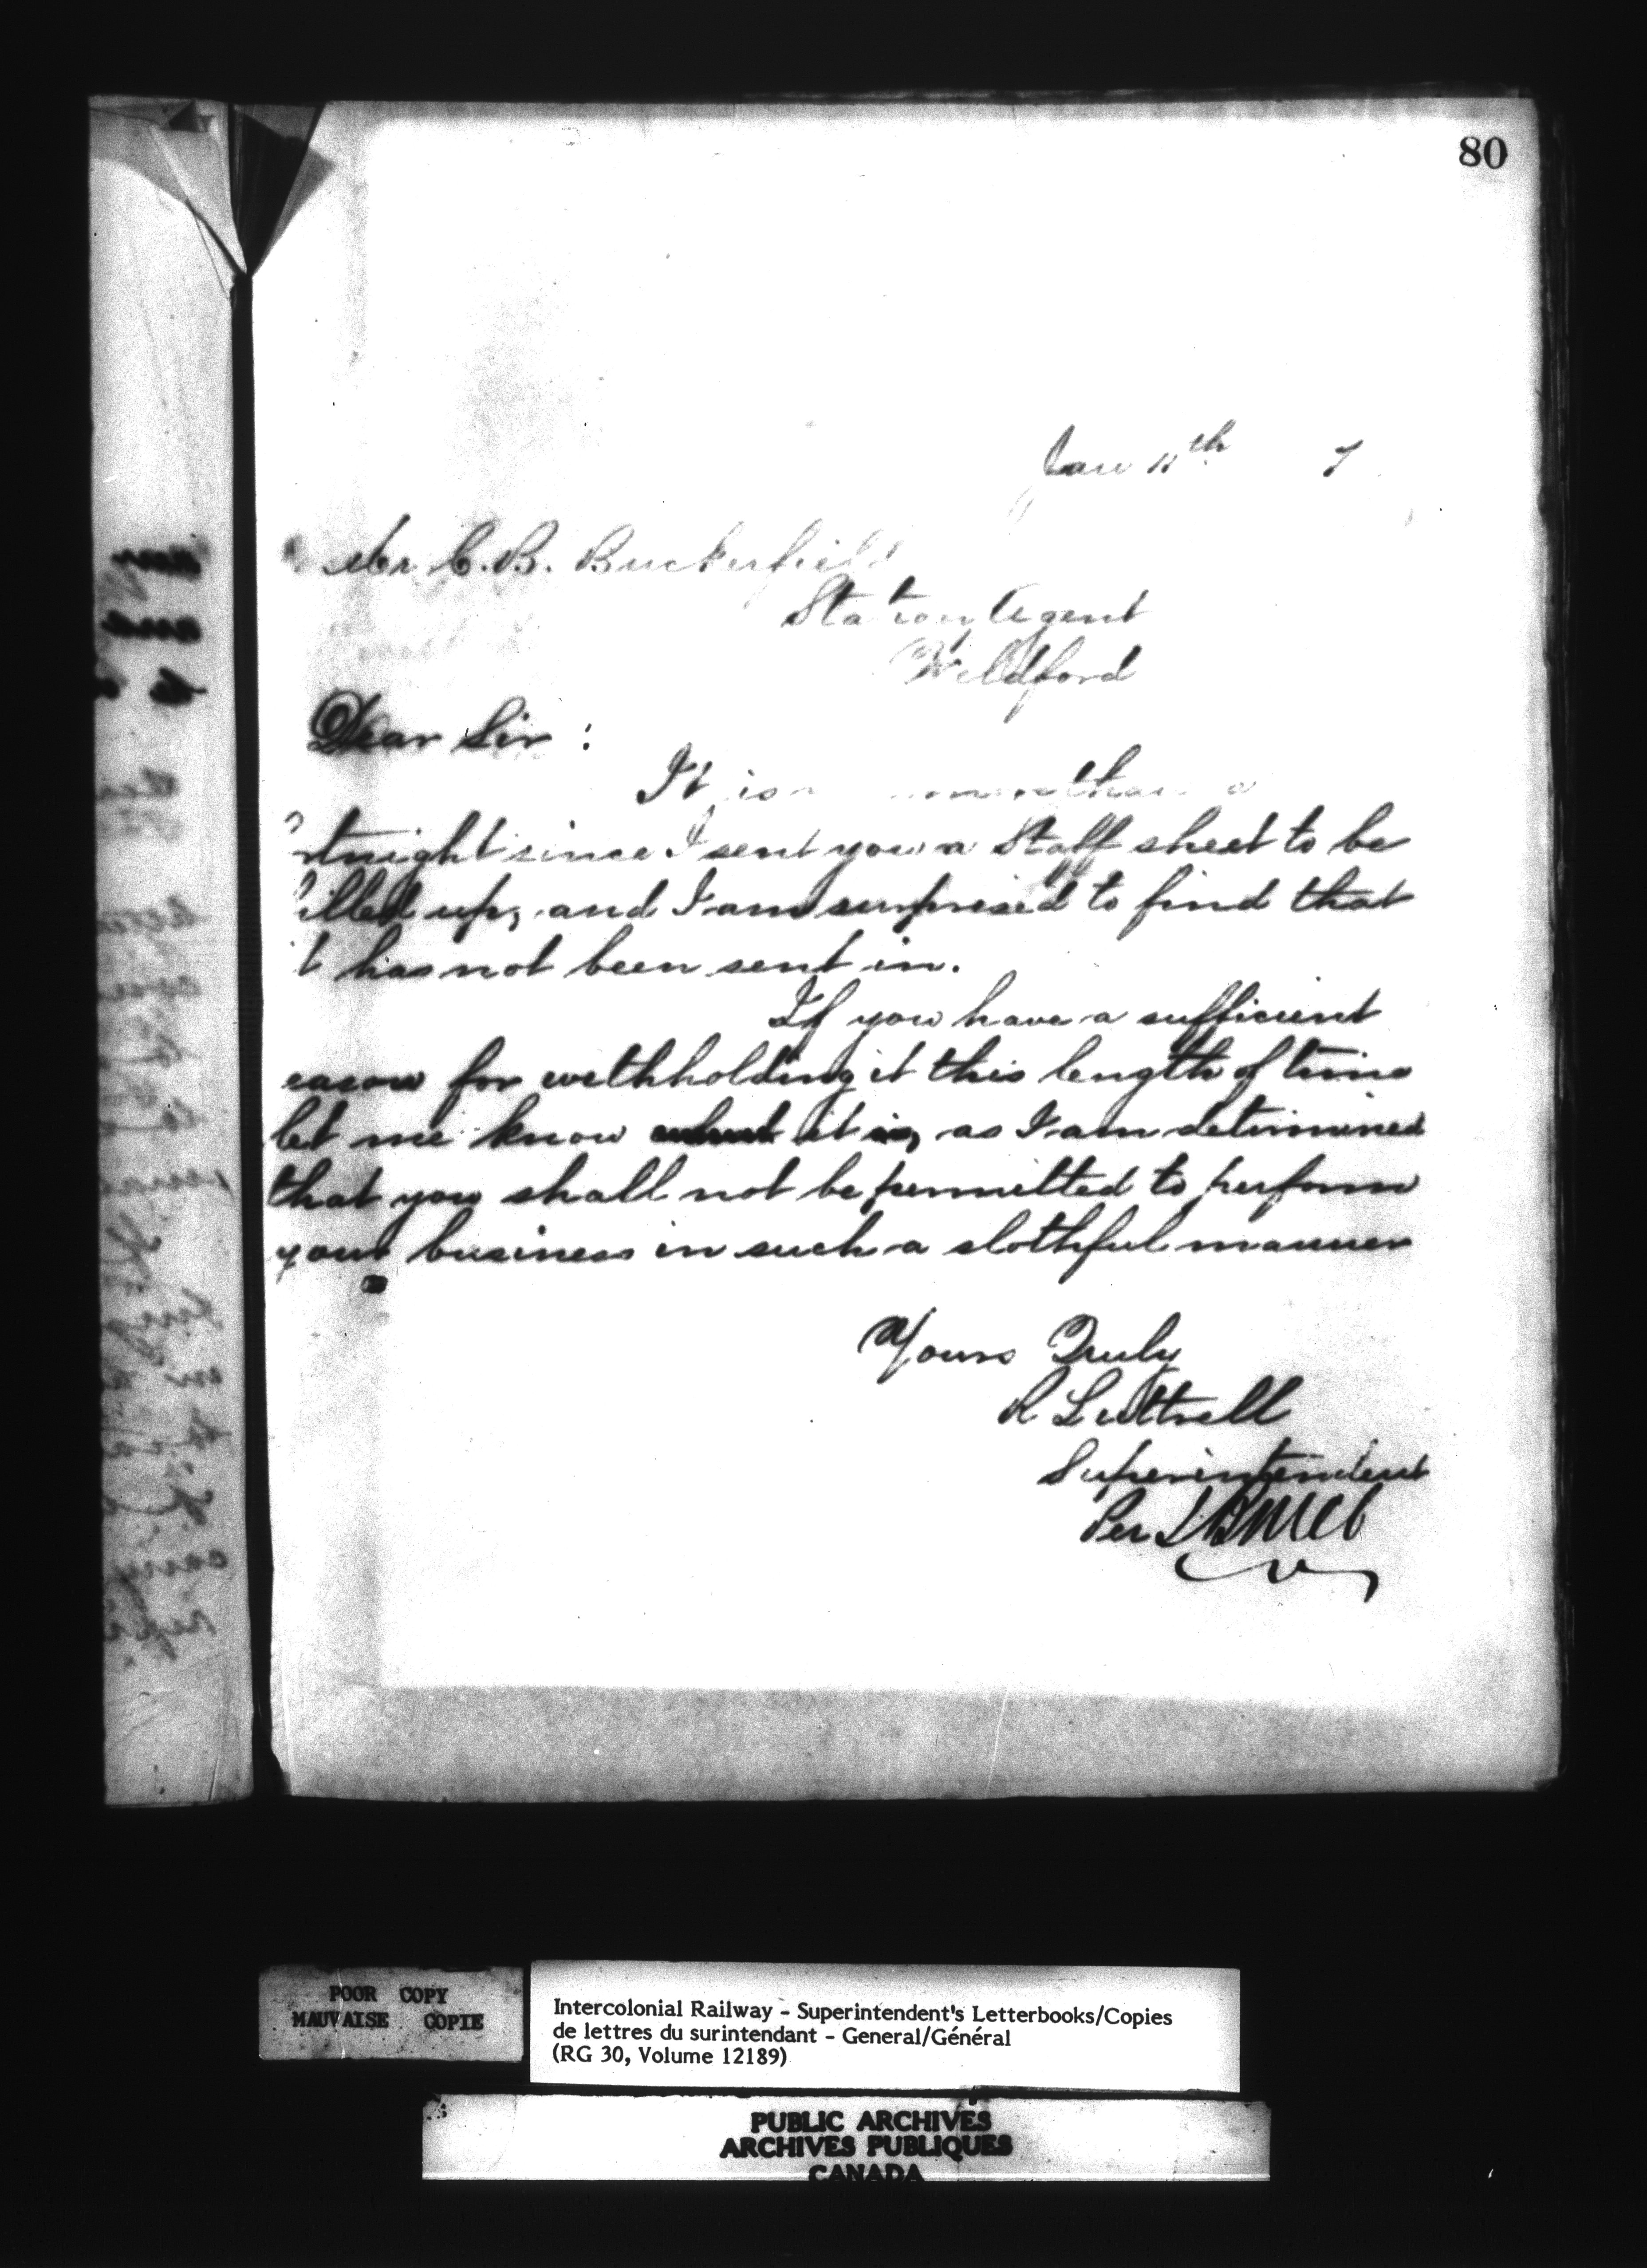 80
Jan 11th 7
Mr C. B. Buckerfield
Station Agent
Weldford
Dear Sir :
It is now more than a
rtnight since I sent you a Staff sheet to be
illed up, and I am surprised to find that
t has not been sent in.
If you have a sufficient
eason for withholding it this length of time
let me know what it is, as I am determined
that you shall not be permitted to perform
your business in such a slothful manner
Yours Truly
R Luttrell
Superintendent
Per
POOR COPY
MAUVAISE COPIE
Intercolonial Railway - Superintendent's Letterbooks/Copies
de lettres du surintendant - General/Général
(RG 30, Volume 12189)
PUBLIC ARCHIVES
ARCHIVES PUBLIQUES
CANADA